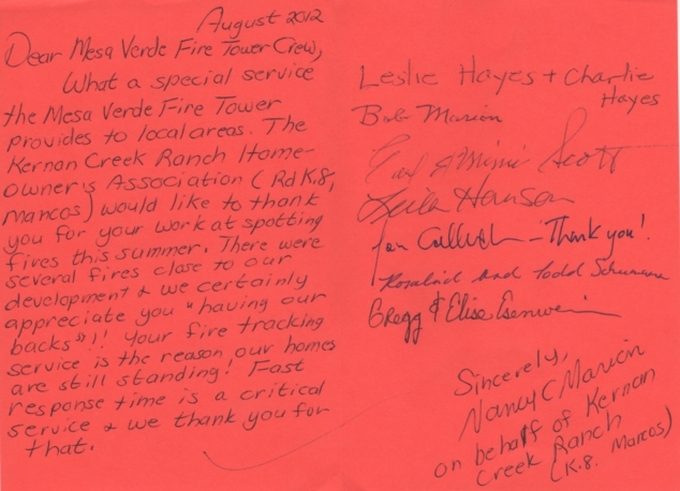 August 2012
Dear Mesa Verde Fire Tower Crew,
What a special service
the Mesa Verde Fire Tower
provides to local areas. The
Kernan Creek Ranch Home-
owner's Association (Rd K.8,
Mancos) would like to thank
you for your work at spotting
fires this summer. There were
several fires close to our
development & we certainly
appreciate you "having our
backs"!! Your fire tracking
service is the reason our homes
are still standing! Fast
response time is a critical
service & we thank you for
that.
Leslie Hayes + Charlie
Hayes
Bob Marion
& Mimi Scott
Leila Hanson
- Thank you!
Rosalind and Todd
Gregg & Elise Esenwein
Sincerely,
Nancy C Marion
on behalf of Kernan
Creek Ranch
(K.8. Mancos)